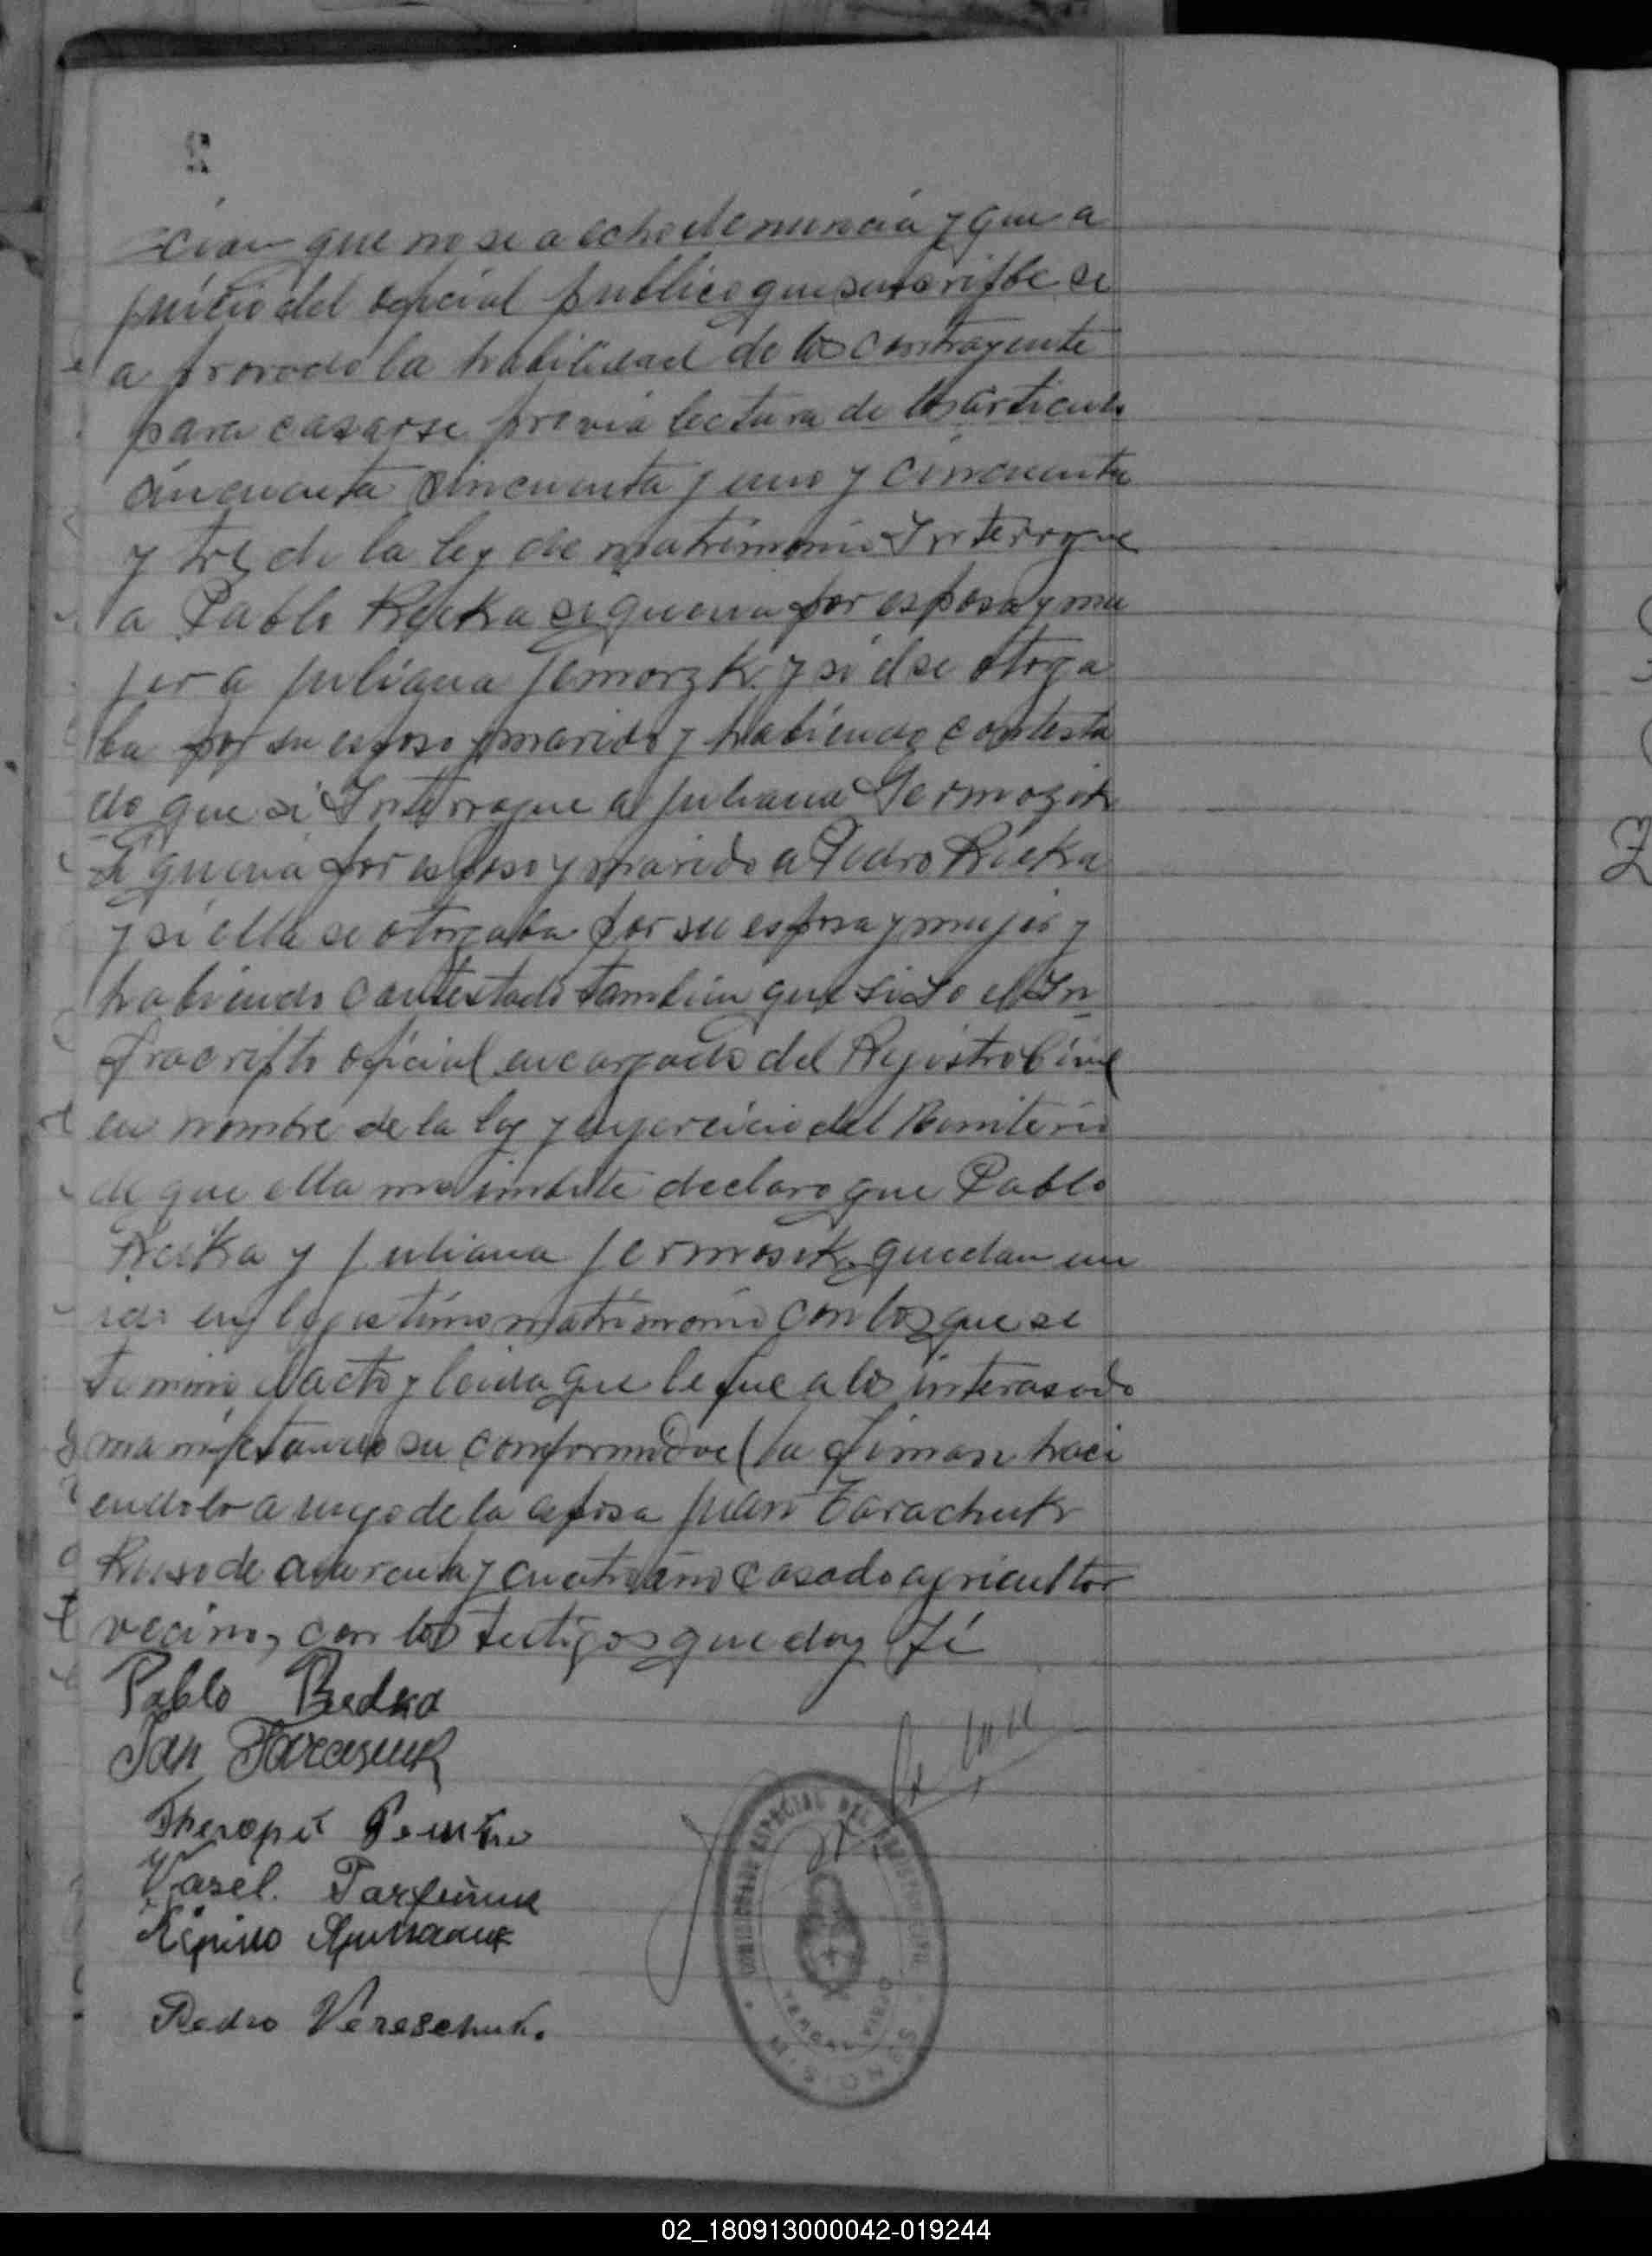 cion que no se a echo denuncia y que a
juicio del oficial publico que suscribe se
a provado la habilidad de los contrayente
para casarse previa lectura de los articulo
cincuenta cincuenta y uno y cincuenta
y tre de la ley de matrimonio Interrogue
a Pablo si queria por esposa y mu
jer a Juliana y si el se otorga
ba por su esposo y marido y habiendo contesta
do que si Interrogue a Juliana
si queria por esposo y marido a Pedro
y si ella se otorgaba por su esposa y mujer y
habiendo contestado tambien que si Yo el In
frascripto oficial encargado del Registro Civil
en nombre de la ley y en ejercicio del
de que ella me declaro que Pablo
y Juliana quedan un
ido en legistimo matrimonio con los que se
termino el acto y leida que le fue a los interasado
manifestando su conformidad la firman haci
endolo a ruego de la esposa Juan Tarachuk
Ruso de cuarenta y cuatro año casado agricultor
vecino, con los testigos que doy fé
Pablo
Jan
Vasél.
Pedro Vereschuk.
MISIONES
02_180913000042-019244